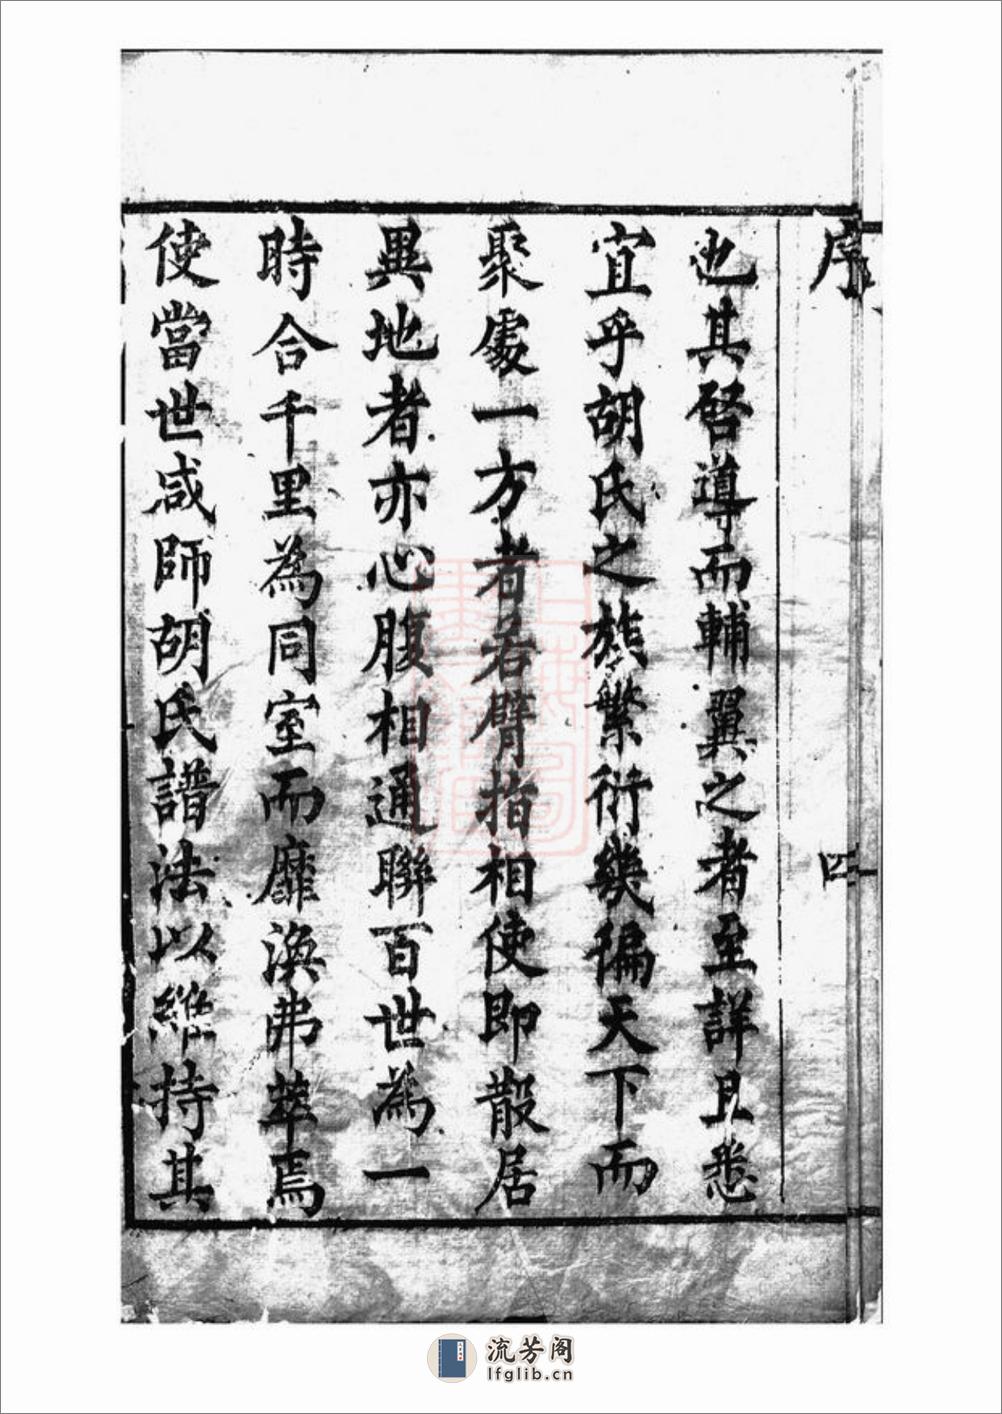 序
四
也其啓導而輔翼之者至詳且悉
宜乎胡氏之族繁衍幾徧天下而
聚處一方者若臂指相使即散居
異地者亦心腹相通聯百世為一
時合千里為同室而靡渙弗萃焉
使當世咸師胡氏譜法以維持其
上海圖書館藏
流芳阁
lfglib.cn